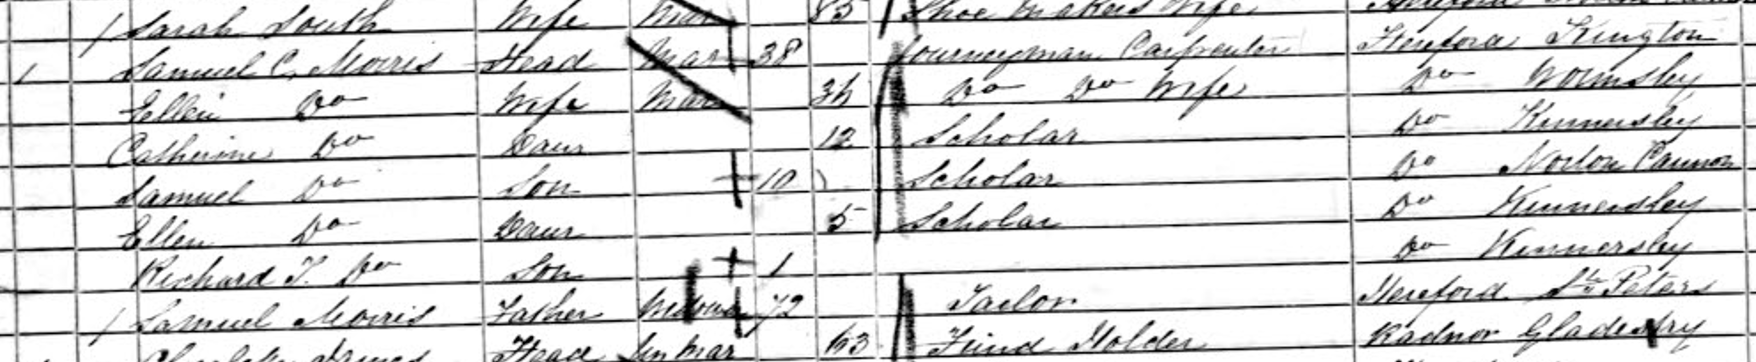 / Sarah South Wife Mar 85 Shoe Makers Wife
1 Samuel C. Morris Head Mar 38 Journeyman Carpenter Hereford Kington
Ellen Do Wife Mar 34 Do Do Wife Do Wormsley
Catherine Do Daur 12 Scholar Do Kinnersley
Samuel Do Son 10 Scholar Do Norton Cannon
Ellen Do Daur 5 Scholar Do Kinnersley
Richard T. Do Son 1 Do Kinnersley
/ Samuel Morris Father Widower 72 Tailor Hereford St. Peters
Head Un Mar 63 Fund Holder Radnor Gladestry